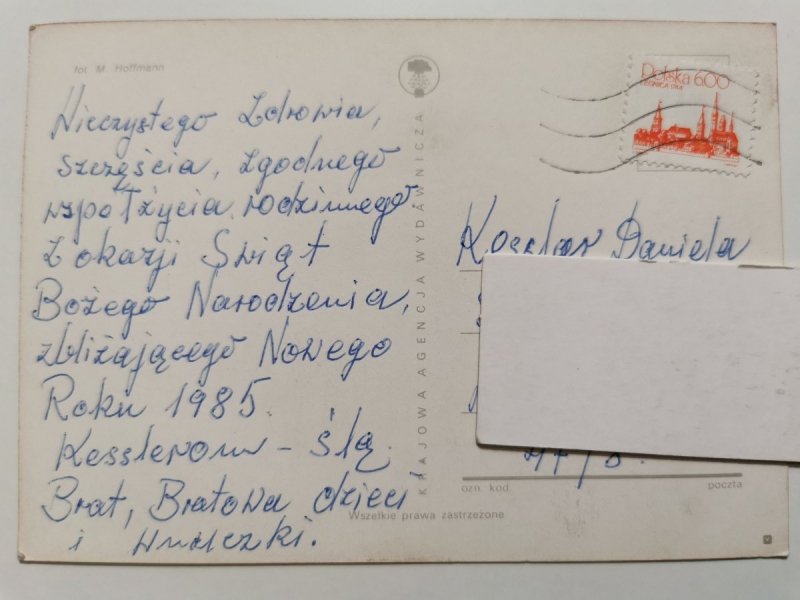 fot. M. Hoffmann
Wieczystego Zdrowia,
szczęścia, zgodnego
współżycia rodzinnego
Z okazji Świąt
Bożego Narodzenia,
zbliżającego Nowego
Roku 1985.
Kesslerom – ślą
Brat, Bratowa dzieci
i wnuczki.
KRAJOWA AGENCJA WYDAWNICZA
Wszelkie prawa zastrzeżone
Polska 600
LEGNICA 1744
Daniela
ozn. kod.
poczta